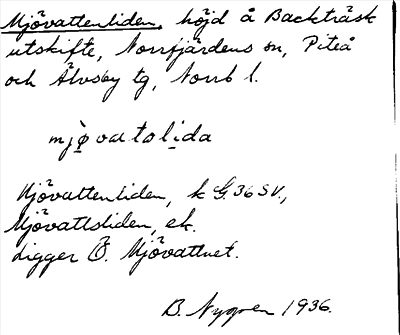 Mjövattenliden, höjd å Backträsk
utskifte, Norrfjärdens sn, Piteå
och Älvsby tg, Norrb l.
mjøvatolida
Mjövattenliden, k G. 36 SV.,
Mjövattsliden, ek.
Ligger Ö. Mjövattnet.
B. Nygren 1936.